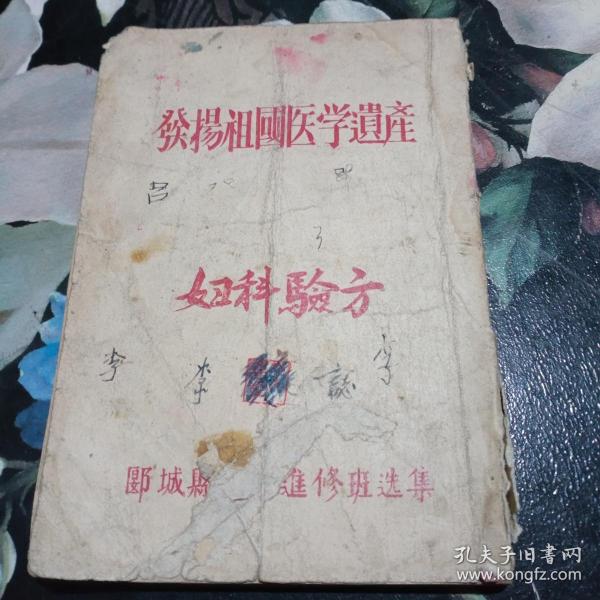 發揚祖國医学遺產
妇科驗方
李 李 誌 李
郾城縣 進修班选集
孔夫子旧书网
www.kongfz.com